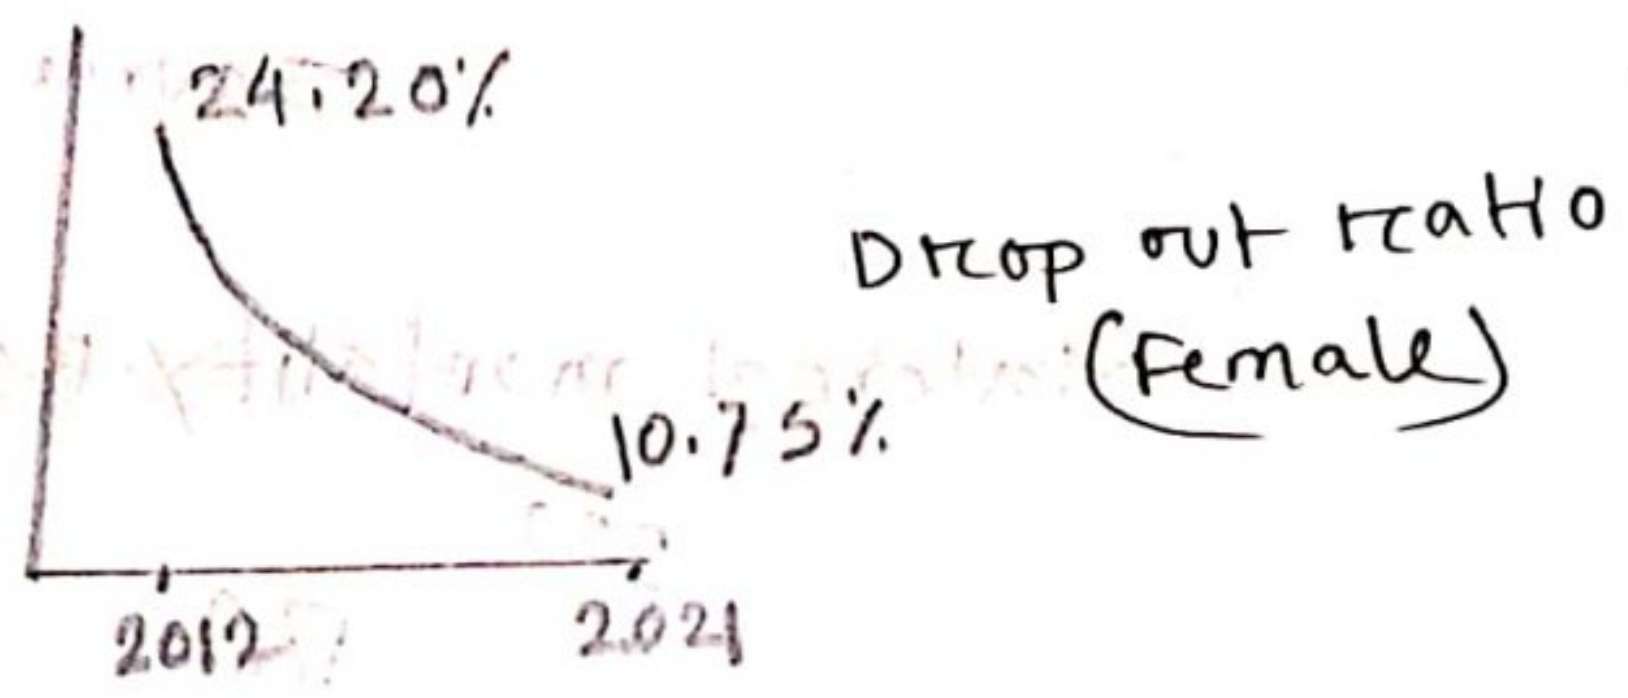 24.20%
Drop out ratio
(Female)
10.75%
2012
2021